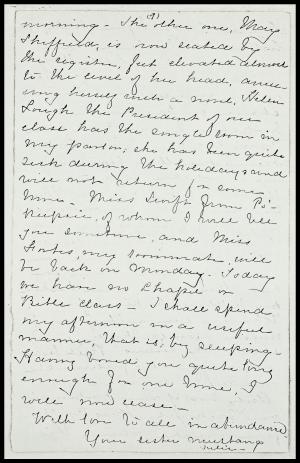 (9)
morning - The other one, May
Sheffield, is now seated by
the register, feet elevated almost
to the level of her head, amu-
sing herself with a novel, Helen
Lough the President of our
class has the single room in
my parlor, she has been quite
sick during the holidays and
will not return for some
time. Miss from Po'-
keepsie, of whom I will tell
you sometime, and Miss
my roommate, will
be back on Monday. Today
we have no Chapel or
Bible class - I shall spend
my afternoon in a useful
manner, that is, by sleeping -
Having bored you quite long
enough for one time, I
will now cease -
With love to all in abundance
Your sister
Julia -